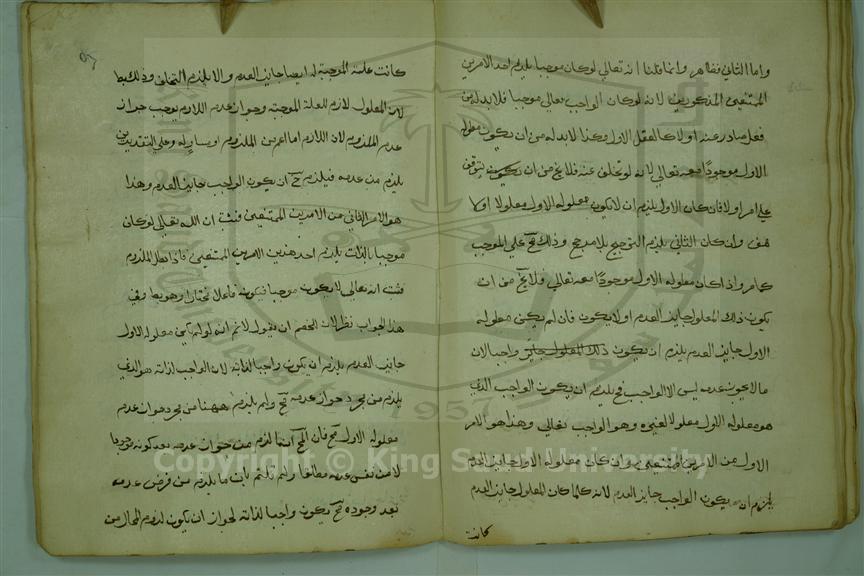 واما الثاني فظاهر وانما قلنا انه تعالى لو كان موجبا يلزم احد الامرين
الممتنعين المذكورين لانه لو كان الواجب تعالى موجبا فلا بد له من
فعل صادر عنه اولا كالعقل الاول وهكذا لا بد له من ان يكون معلوله
الاول موجودا معه تعالى لانه لو تخلف عنه فلا يخ من ان يكون يتوقف
على امر اولا فان كان الاول يلزم ان لا يكون معلوله الاول معلولا اولا
هف وان كان الثاني يلزم الترجيح بلا مرجح وذلك مح على الموجب
كما مر واذا كان معلوله الاول موجودا معه تعالى فلا يخ من ان
يكون ذلك المعلول جايز العدم اولا يكون فان لم يكن معلوله
الاول جايز العدم يلزم ان يكون ذلك المعلول جايز واجبا لان
ما لا يجوز عدمه ليس الا الواجب فح يلزم ان يكون الواجب الذي
هو معلوله الاول معلولا لغيره وهو الواجب تعالى وهذا هو الامر
الاول من الامرين الممتنعين وان كان معلوله الاول جايز العدم
يلزم ان يكون الواجب جايز العدم لانه كلما كان المعلول جايز العدم
كانت
كانت علته الموجبة له ايضا جايز العدم والا يلزم التخلف وذلك بط
لان المعلول لازم للعلة الموجبة وجواز عدم اللازم يوجب جواز
عدم الملزوم لان اللازم اما اعم من الملزوم او مساو له وعلى التقديرين
يلزم من عدمه فيلزم ح ان يكون الواجب جايز العدم وهذا
هو الامر الثاني من الامرين الممتنعين فثبت ان الله تعالى لو كان
موجبا بالذات يلزم احد هذين الامرين الممتنعين فاذا بطل الملزوم
فثبت انه تعالى لا يكون موجبا فيكون فاعلا مختارا وهو المط وفي
هذا الجواب نظر لان الخصم ان يقول لا نم انه لو لم يكن معلوله الاول
جايز العدم يلزم ان يكون واجبا لذاته لان الواجب لذاته هو الذي
يلزم من مجرد جواز عدمه مح ولم يلزم ههنا من مجرد جواز عدم
معلوله الاول مح فان المح انما لزم من جواز عدمه بعد كونه موجودا
لا من نفس عدمه مطلقا ولم قلتم بان ما يلزم من فرض عدمه
بعد وجوده مح يكون واجبا لذاته لجواز ان يكون لزوم المحال من
Copyright © King Saud University
1957